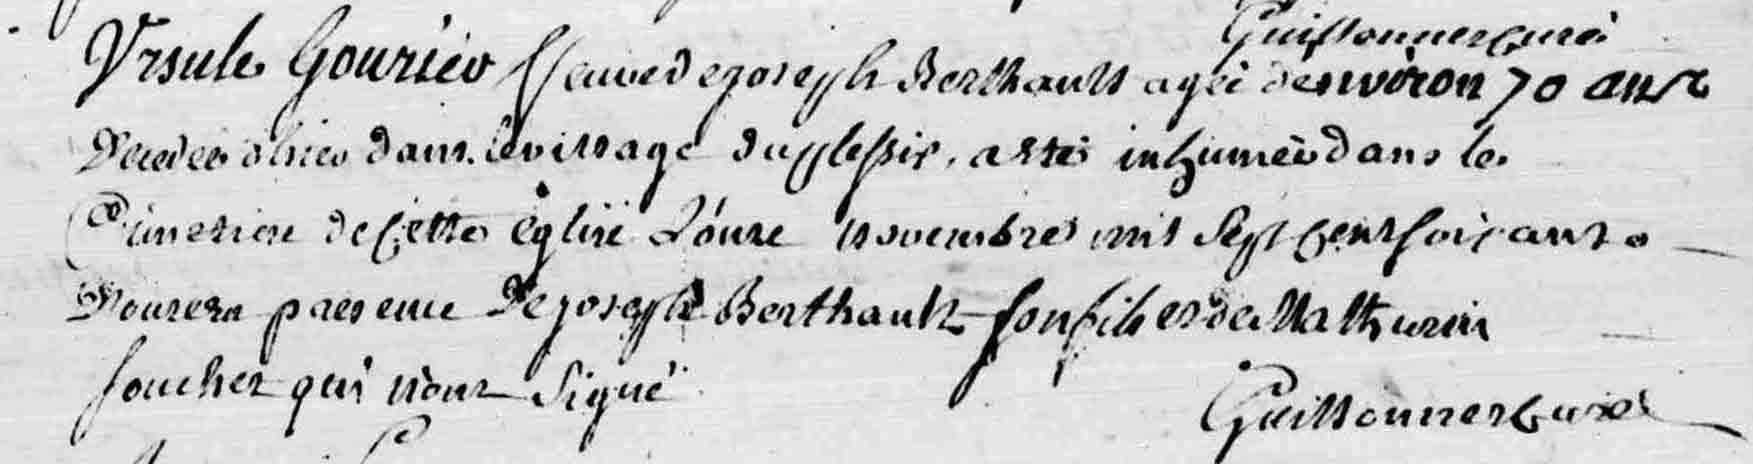 Guillonner curé
Ursule Gourieo veuve de joseph Berthault agée denviron 70 ans
decedeo dhier dans le village du plessix, a eté inhumeé dans le
Cimetiere de cette eglise L'onze novembre mil sept cent soixante
en presence De joseph Berthault son fils et de Mathurin
foucher qui n'ont signé
Guillonner curé